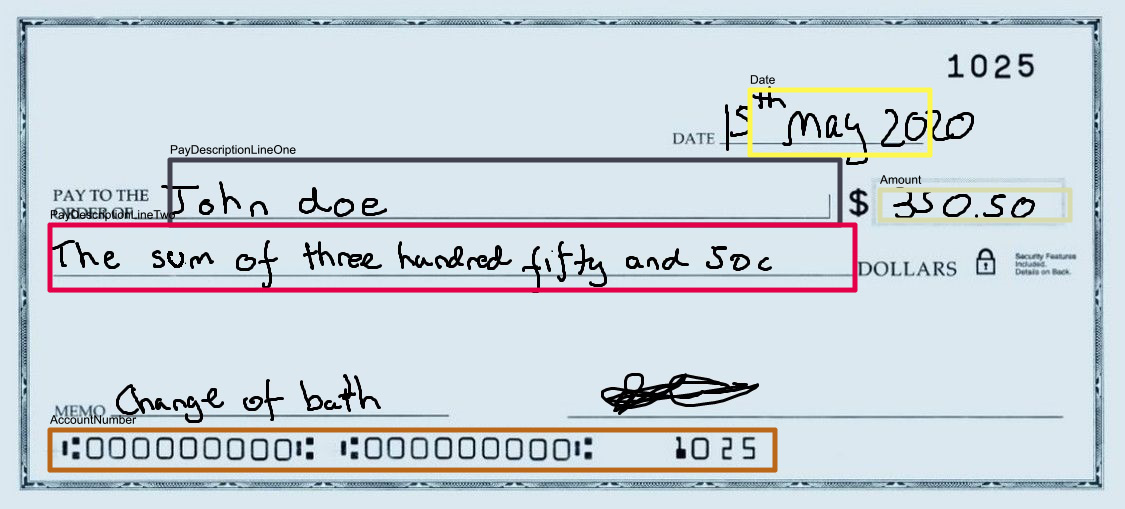 1025
Date
DATE 15th May 2020
PayDescriptionLineOne
Amount
PAY TO THE
ORDER OF John doe $ 350.50
PayDescriptionLineTwo
The sum of three hundred fifty and 50c DOLLARS
Security Features
Included.
Details on Back.
MEMO Change of bath
AccountNumber
⑆000000000⑆ ⑆000000000⑆ 1025